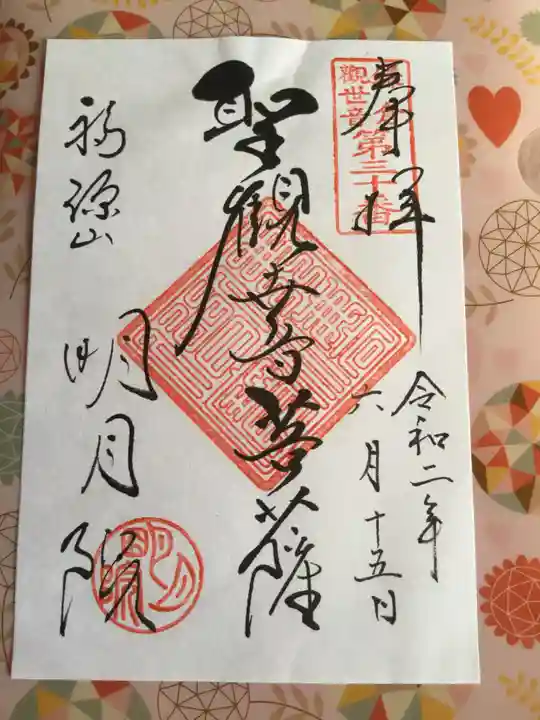 奉拝
観世音第三十番
令和二年
六月十五日
聖観世音菩薩
福源山
明月院